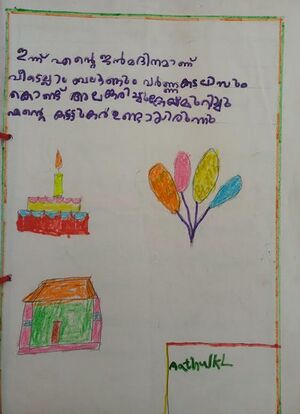 ഇന്ന് എന്റെ ജന്മദിനമാണ്
വീടെല്ലാം ബലൂണും വർണ്ണകടലാസും
കൊണ്ട് അലങ്കരിച്ചു കേയ്ക്കുമുറിച്ചു
എന്റെ കൂട്ടുകാർ ഉണ്ടായിരുന്നു
Aathulkl